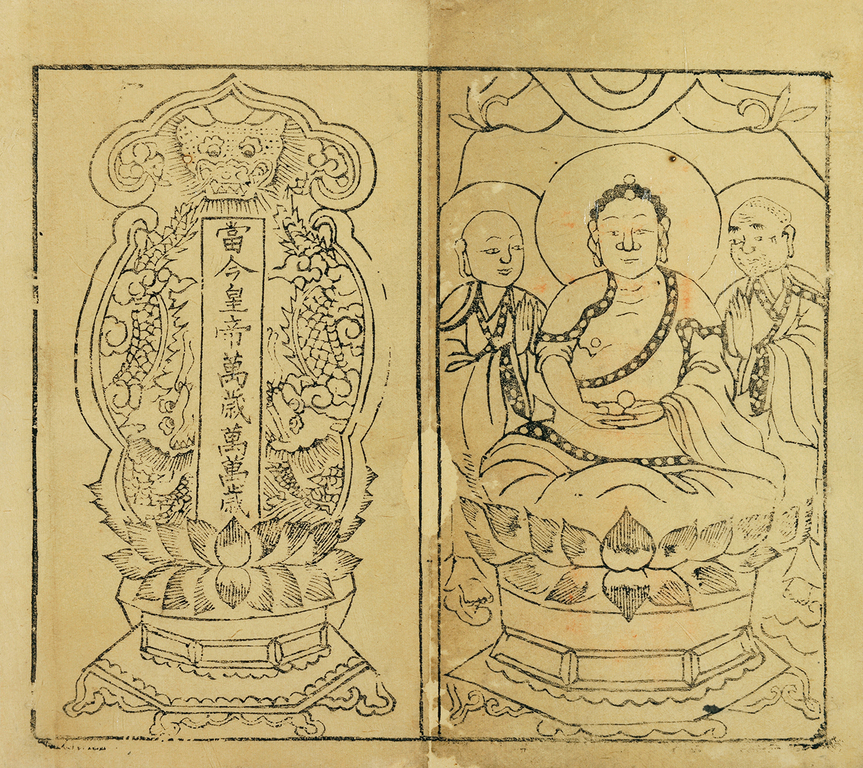 當今皇帝萬歲萬萬歲